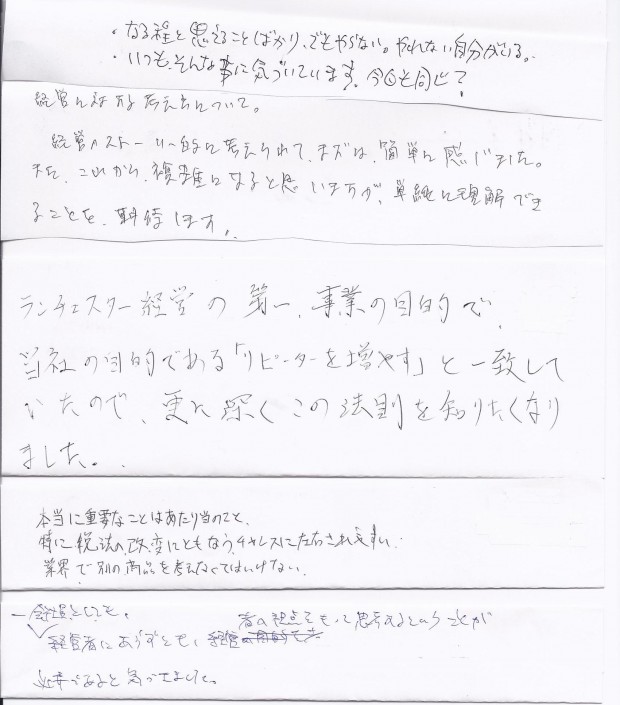 ・なる程と思えることばかり、でもやらない。やれない自分がいる。
・いつも、そんな事に気づいています。今回も同じ?
経営に対する考え方について。
経営がストーリー的に考えられて、まずは、簡単に感じました。
また、これから、複雑になると思いますが、単純に理解でき
ることを、期待します。
ランチェスター経営の第一、事業の目的で、
当社の目的である「リピーターを増やす」と一致して
いたので、更に深くこの法則を知りたくなり
ました。
本当に重要なことはあたり当のこと
特に税法の改変にともなうチャンスに左右されやすい、
業界で別の商品を考えなくてはいけない
一会社員としても、
経営者にあらずとも、経営者の視点をもって思考えるということが
必要であると気づきました。